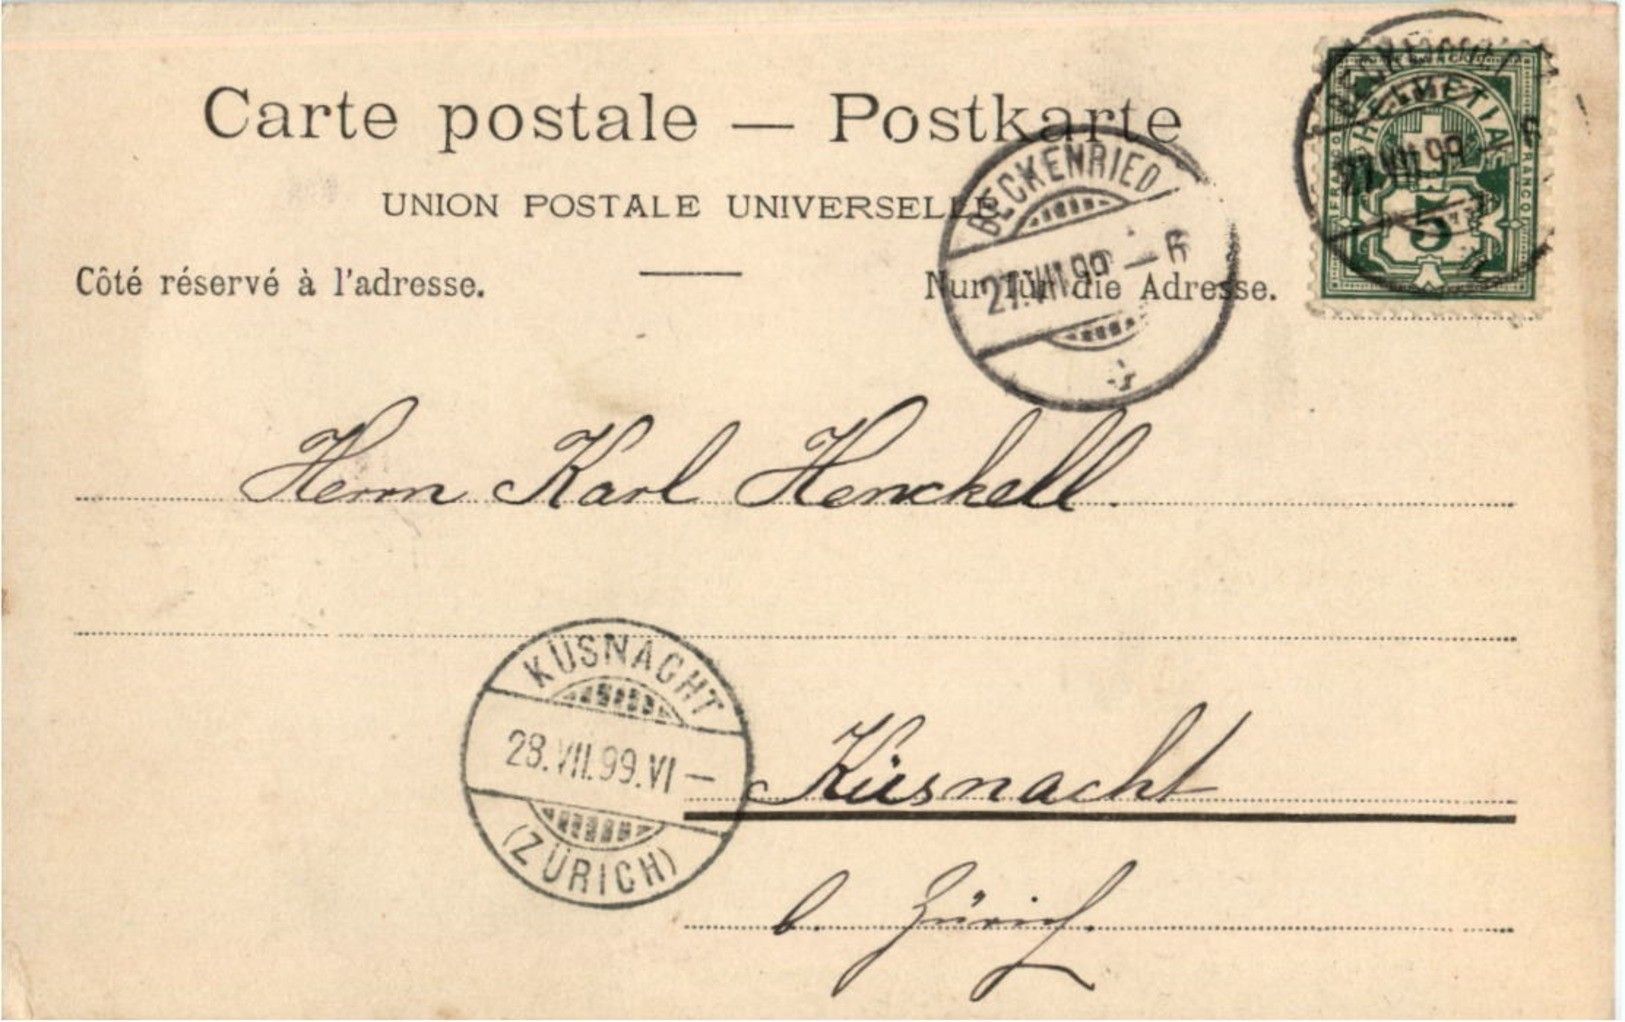 Carte postale — Postkarte
UNION POSTALE UNIVERSELLE
Côté réservé à l'adresse.
Nur für die Adresse.
BECKENRIED
27.VII.99
HELVETIA
FRANCO
FRANCO
5
BECKENRIED
27.VII.99 — 6
Herrn Karl Henckell.
KÜSNACHT
28.VII.99.VI —
(ZÜRICH)
Küsnacht
b. Zürich.